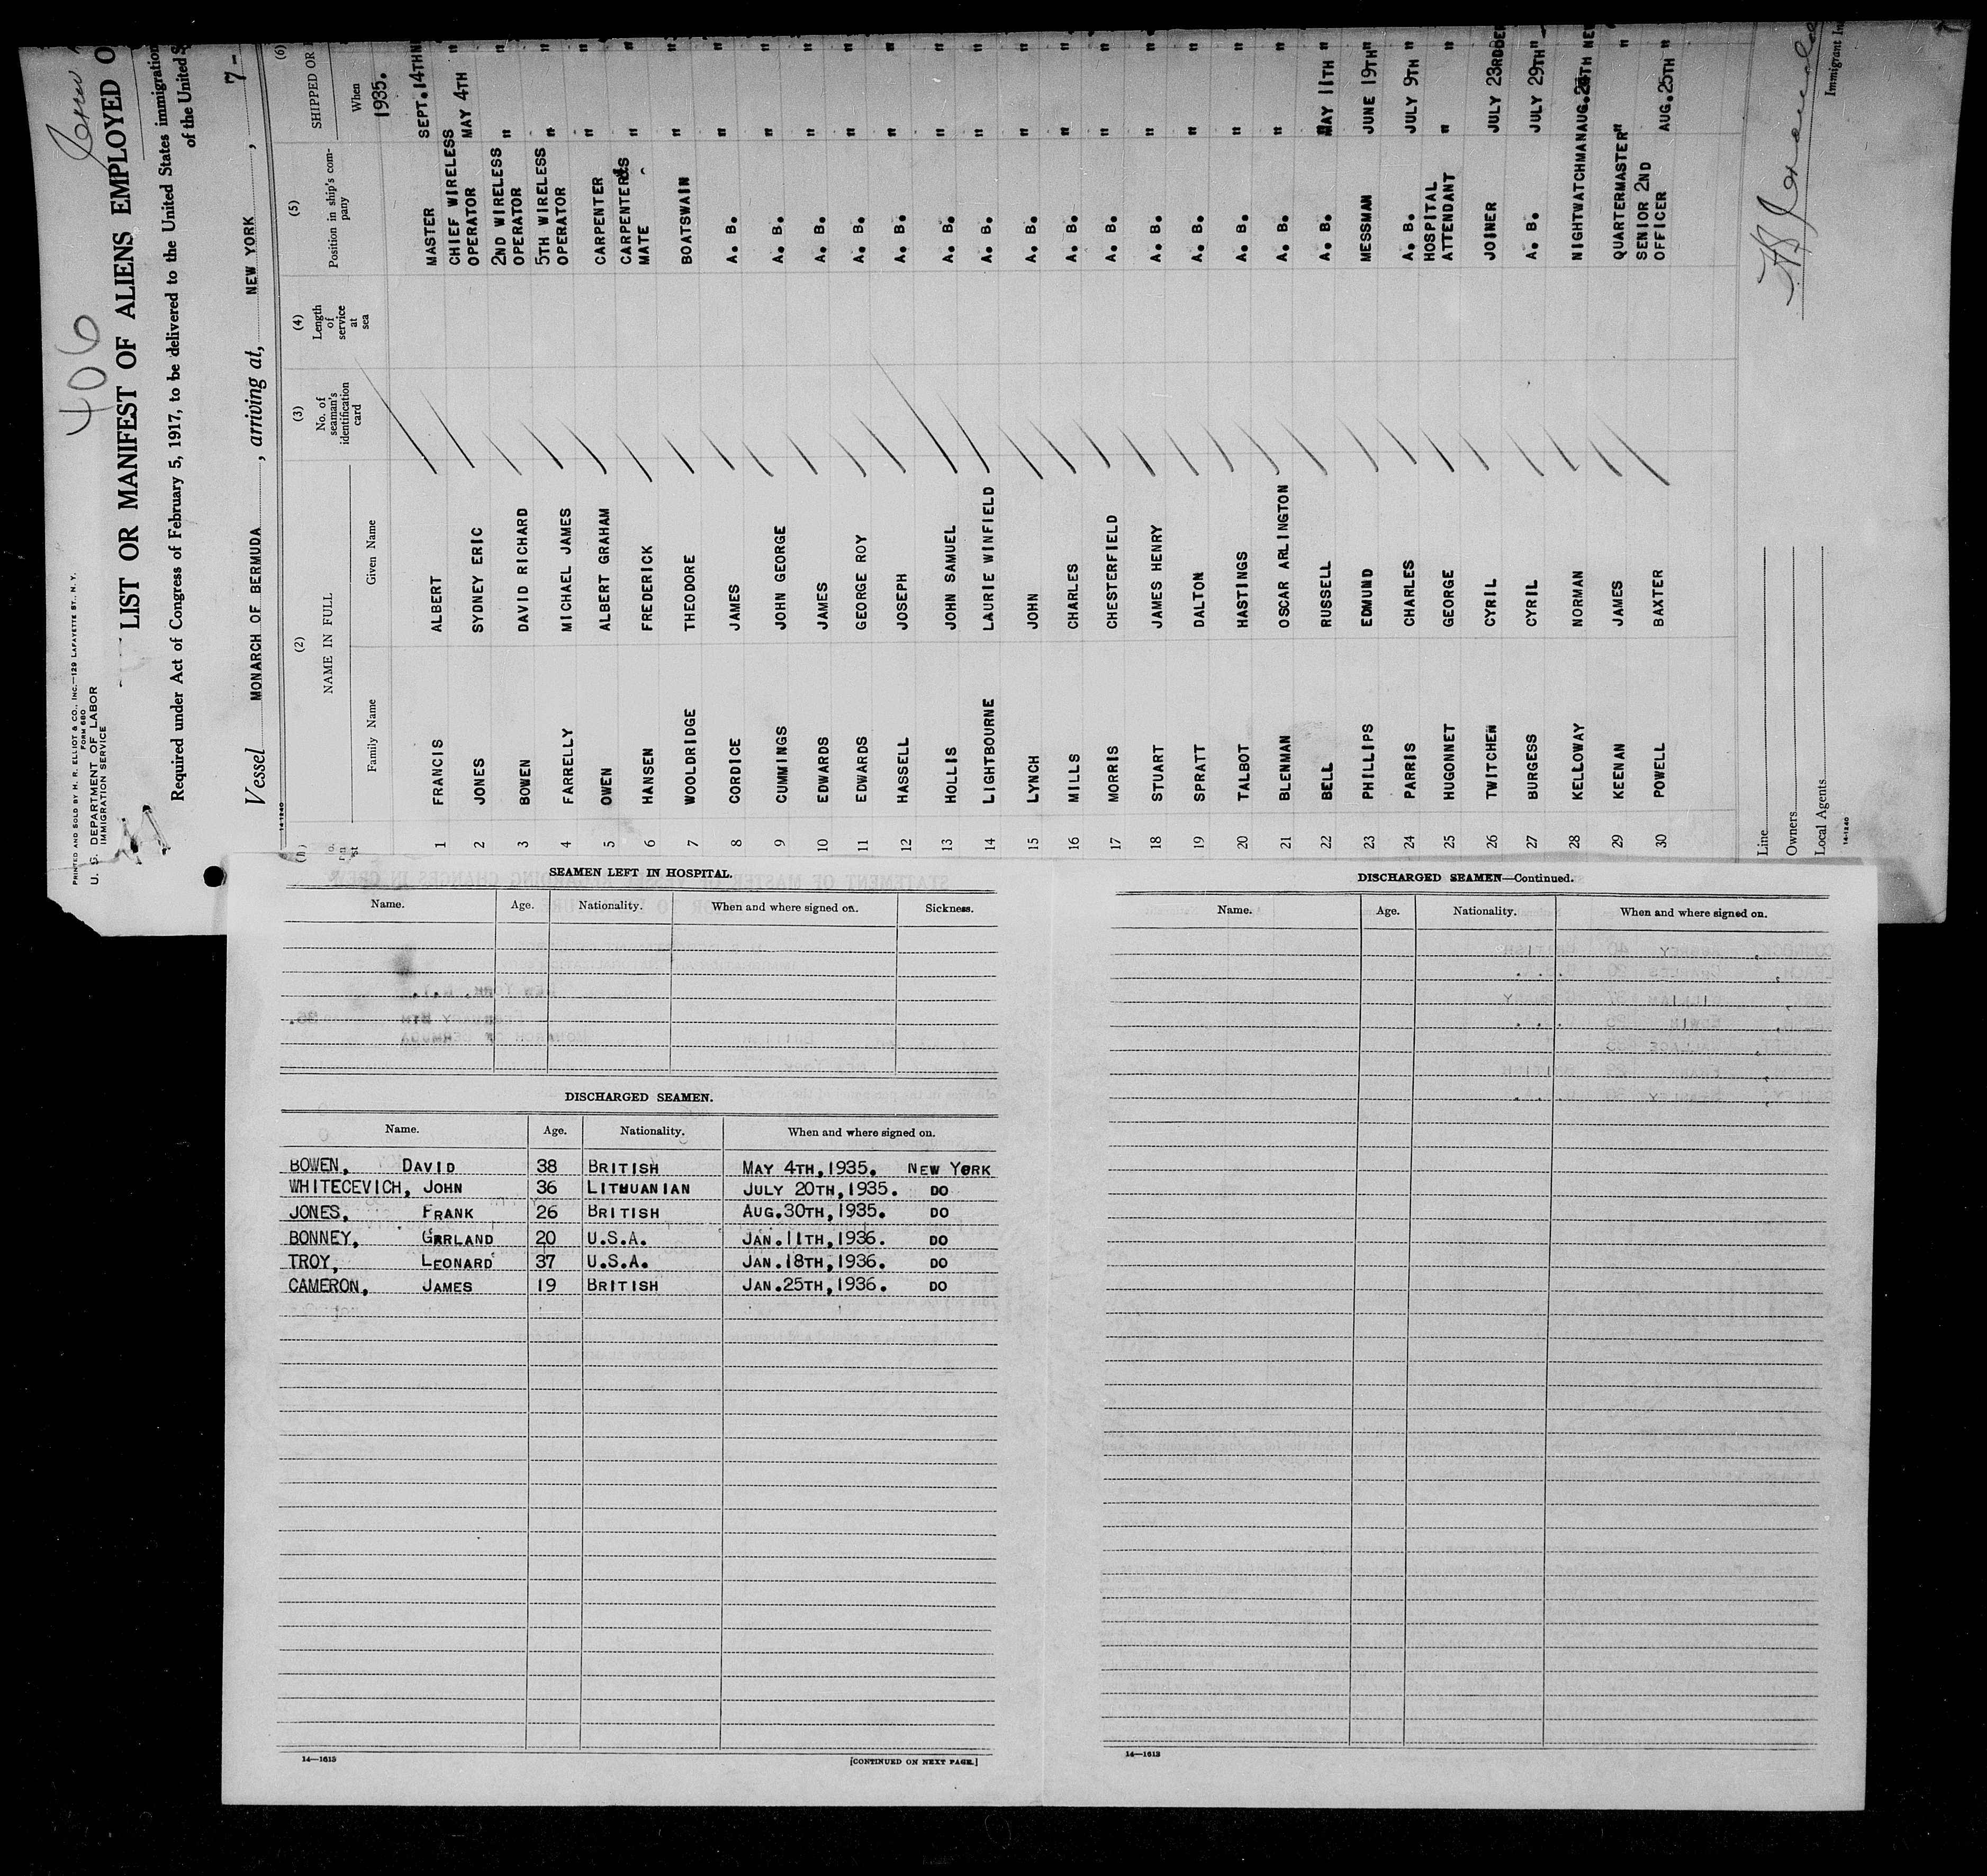 406
PRINTED AND SOLD BY H. R. ELLIOT & CO., INC.—129 LAFAYETTE ST., N. Y.
FORM 680
U. S. DEPARTMENT OF LABOR
IMMIGRATION SERVICE
LIST OR MANIFEST OF ALIENS EMPLOYED O
Required under Act of Congress of February 5, 1917, to be delivered to the United States immigration
of the United S
Vessel MONARCH OF BERMUDA, arriving at, NEW YORK, 7-
14-1240
(2) (3) (4) (5) (6)
NAME IN FULL No. of seaman's identification card Length of service at sea Position in ship's company SHIPPED OR
Family Name Given Name When
1935.
1 FRANCIS ALBERT MASTER SEPT.14TH
2 JONES SYDNEY ERIC CHIEF WIRELESS OPERATOR MAY 4TH "
3 BOWEN DAVID RICHARD 2ND WIRELESS OPERATOR " "
4 FARRELLY MICHAEL JAMES 5TH WIRELESS OPERATOR " "
5 OWEN ALBERT GRAHAM CARPENTER " "
6 HANSEN FREDERICK CARPENTERS MATE " "
7 WOOLDRIDGE THEODORE BOATSWAIN " "
8 CORDICE JAMES A. B. " "
9 CUMMINGS JOHN GEORGE A. B. " "
10 EDWARDS JAMES A. B. " "
11 EDWARDS GEORGE ROY A. B. " "
12 HASSELL JOSEPH A. B. " "
13 HOLLIS JOHN SAMUEL A. B. " "
14 LIGHTBOURNE LAURIE WINFIELD A. B. " "
15 LYNCH JOHN A. B. " "
16 MILLS CHARLES A. B. " "
17 MORRIS CHESTERFIELD A. B. " "
18 STUART JAMES HENRY A. B. " "
19 SPRATT DALTON A. B. " "
20 TALBOT HASTINGS A. B. " "
21 BLENMAN OSCAR ARLINGTON A. B. " "
22 BELL RUSSELL A. B. MAY 11TH "
23 PHILLIPS EDMUND MESSMAN JUNE 19TH "
24 PARRIS CHARLES A. B. JULY 9TH "
25 HUGONNET GEORGE HOSPITAL ATTENDANT " "
26 TWITCHEN CYRIL JOINER JULY 23RD
27 BURGESS CYRIL A. B. JULY 29TH "
28 KELLOWAY NORMAN NIGHTWATCHMAN AUG. NE
29 KEENAN JAMES QUARTERMASTER " "
30 POWELL BAXTER SENIOR 2ND OFFICER AUG.25TH "
Line
Owners
Local Agents
Immigrant In
14-1240
SEAMEN LEFT IN HOSPITAL.
Name. Age. Nationality. When and where signed on. Sickness.
DISCHARGED SEAMEN.
Name. Age. Nationality. When and where signed on.
BOWEN, DAVID 38 BRITISH MAY 4TH, 1935. NEW YORK
WHITECEVICH, JOHN 36 LITHUANIAN JULY 20TH, 1935. DO
JONES, FRANK 26 BRITISH AUG.30TH, 1935. DO
BONNEY, GARLAND 20 U.S.A. JAN.11TH, 1936. DO
TROY, LEONARD 37 U.S.A. JAN.18TH, 1936. DO
CAMERON, JAMES 19 BRITISH JAN.25TH, 1936. DO
14—1613
[CONTINUED ON NEXT PAGE.]
DISCHARGED SEAMEN—Continued.
Name. Age. Nationality. When and where signed on.
14—1613